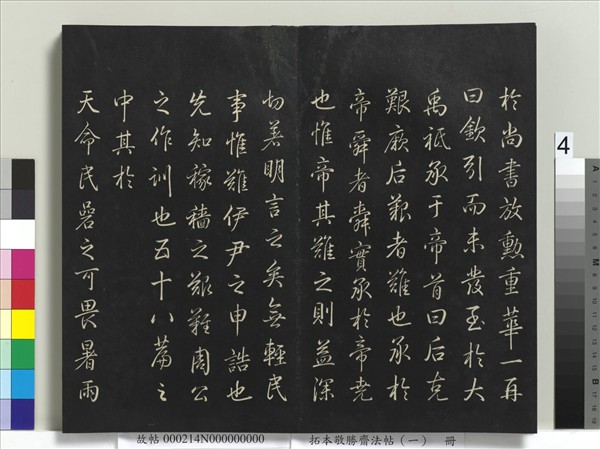 於尚書放勳重華一再
曰欽引而未發至於大
禹祗承于帝首曰后克
艱厥后艱者難也承於
帝舜者舜實承於帝堯
也惟帝其難之則益深
切著明言之矣無輕民
事惟難伊尹之申誥也
先知稼穡之艱難周公
之作訓也五十八篇之
中其於
天命民喦之可畏暑雨
4
故帖 000214N000000000 拓本敬勝齋法帖（一） 冊